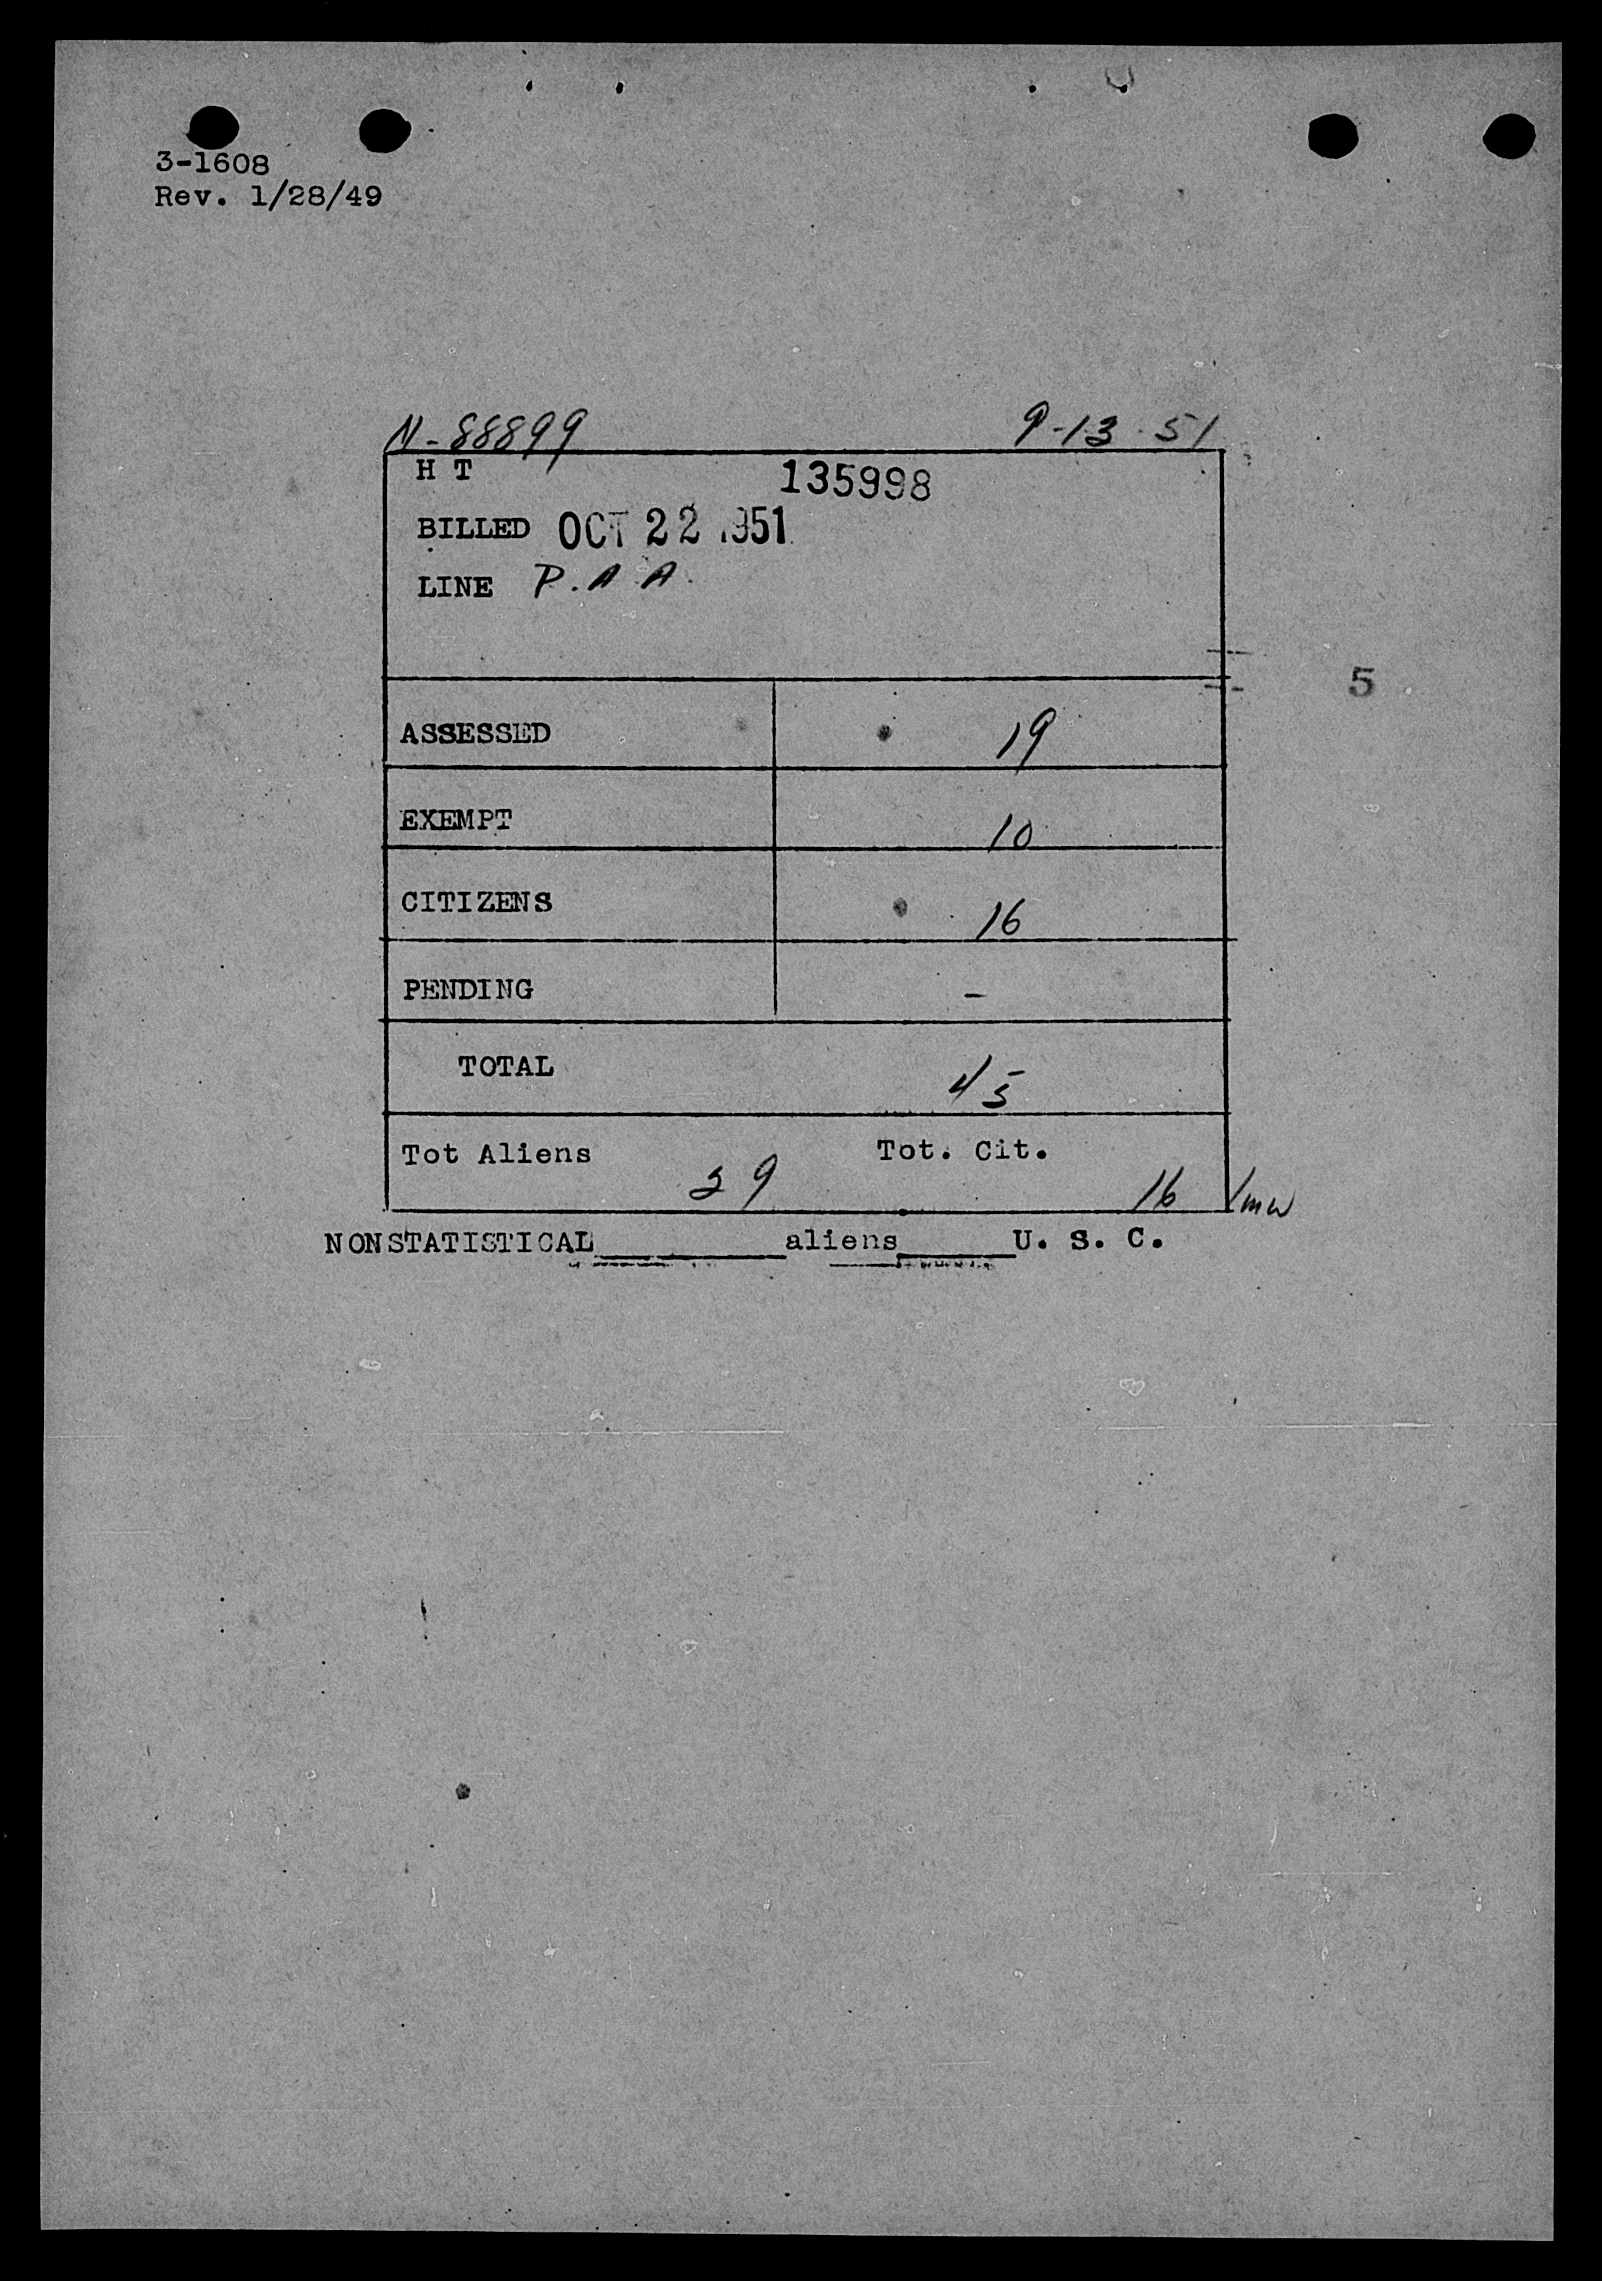 3-1608
Rev. 1/28/49
N-88899 9-13-51
H T 135998
BILLED OCT 22 1951
LINE P.A.A.
5
ASSESSED 19
EXEMPT 10
CITIZENS 16
PENDING -
TOTAL 45
Tot Aliens 29 Tot. Cit. 16 /mw
NONSTATISTICAL________aliens_____U. S. C.